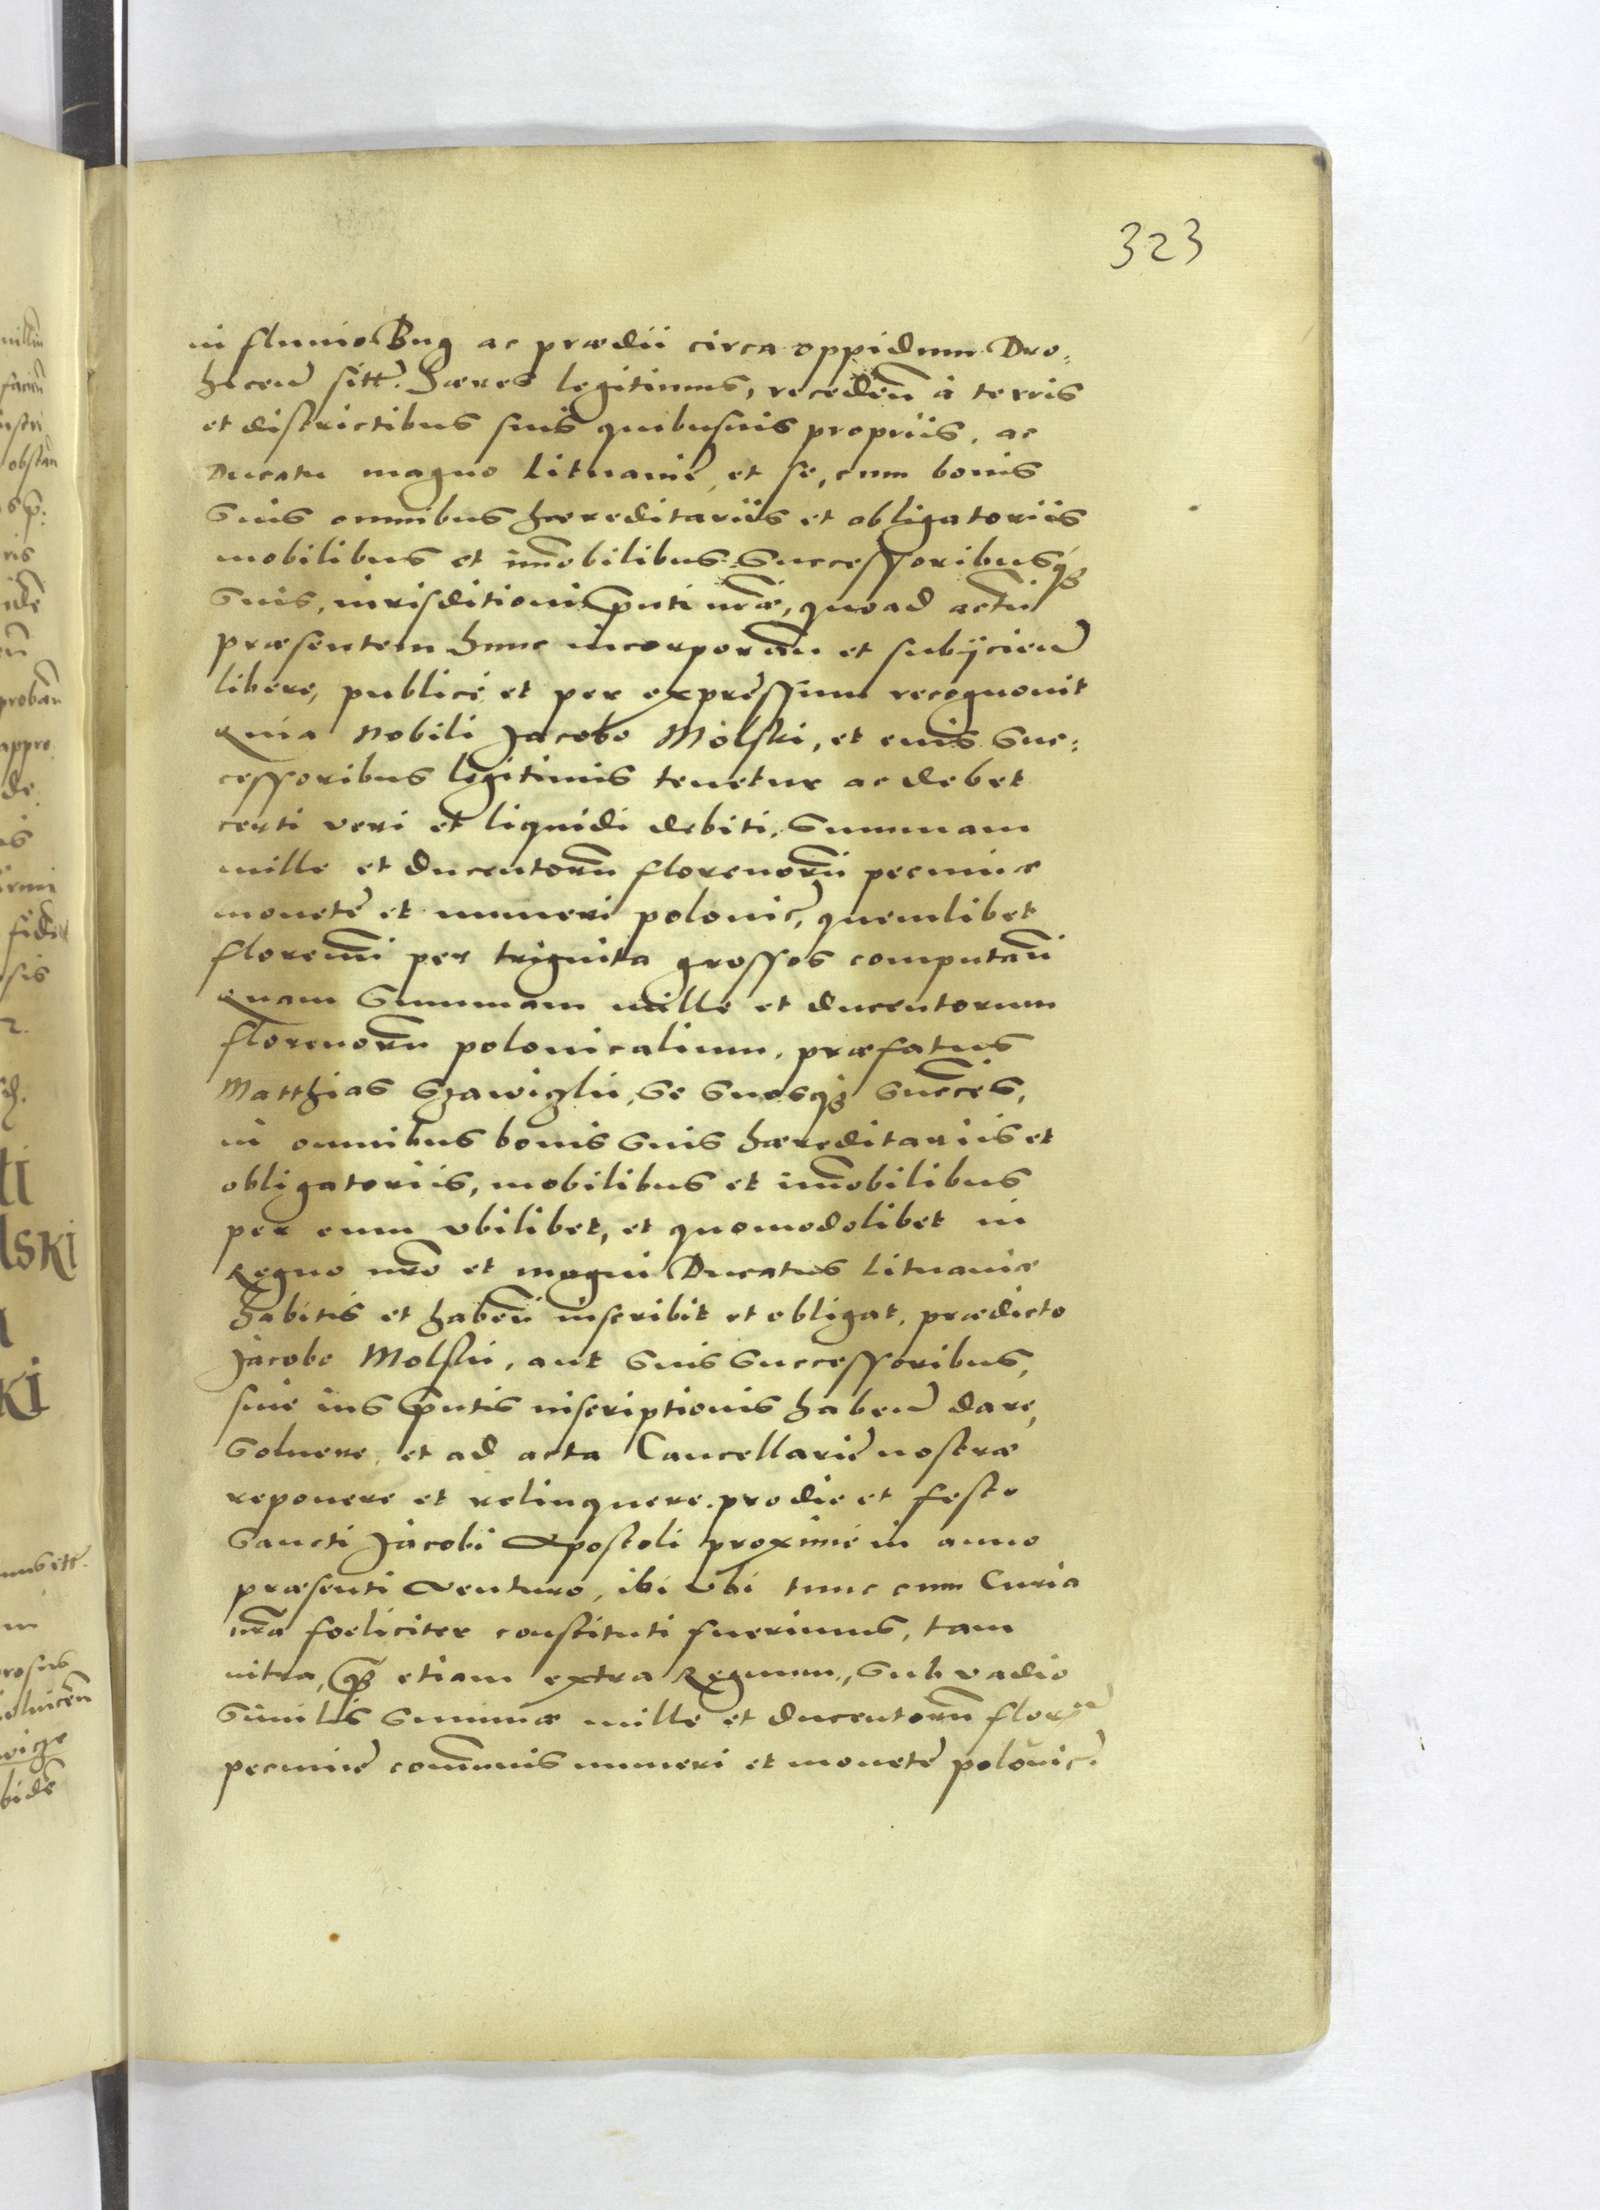 323
in fluuio Bug ac prædii circa oppidum Dro¿
hicen̄ sitt. Hæres legitimus, receden̄ à terris
et districtibus suis quibusuis propriis, ac
Ducatu magno Lituaniæ, et se, cum bonis
suis omnibus hæreditariis et obligatoriis
mobilibus et im̄obilibus successoribusq́ꝫ
suis, iurisditioni pn̄ti nr̄æ, quoad actū
præsentem hunc incorporan̄ et subijcien̄
libere, publicè et per expressum recognouit
Quia Nobili Jacobo Molski, et eius suc:
cessoribus legitimis tenetur ac debet
certi veri et liquidi debiti, Summam
mille et Ducentorū florenorū pecuniæ
monetę et numeri polonic̄, quemlibet
florenū per triginta grossos computan̄
Quam Summam mille et ducentorum
florenorū polonicalium, præfatus
Matthias Szawiglii, se suosq́ꝫ succēs,
in omnibus bonis suis hæreditariis et
obligatoriis, mobilibus et im̄obilibus
per eum vbilibet, et quomodolibet in
Regno nr̄o et magni Ducatus Lituaniæ
habitis et haben̄ inscribit et obligat, prædicto
Jacobo Molskii, aut suis successoribus,
siue ius pn̄tis inscriptionis haben̄ dare,
soluere, et ad acta Cancellarię nostræ
reponere et relinquere, pro die et festo
Sancti Jacobi Apostoli proximè in anno
præsenti venturo, ibi vbi tunc cum Curia
nr̄a fœliciter constituti fuerimus, tam
intra, qꝫ etiam extra Regnum, sub vadio
similis summæ mille et ducentorū flor̄
pecunię com̄unis numeri et monetę polonic̄.